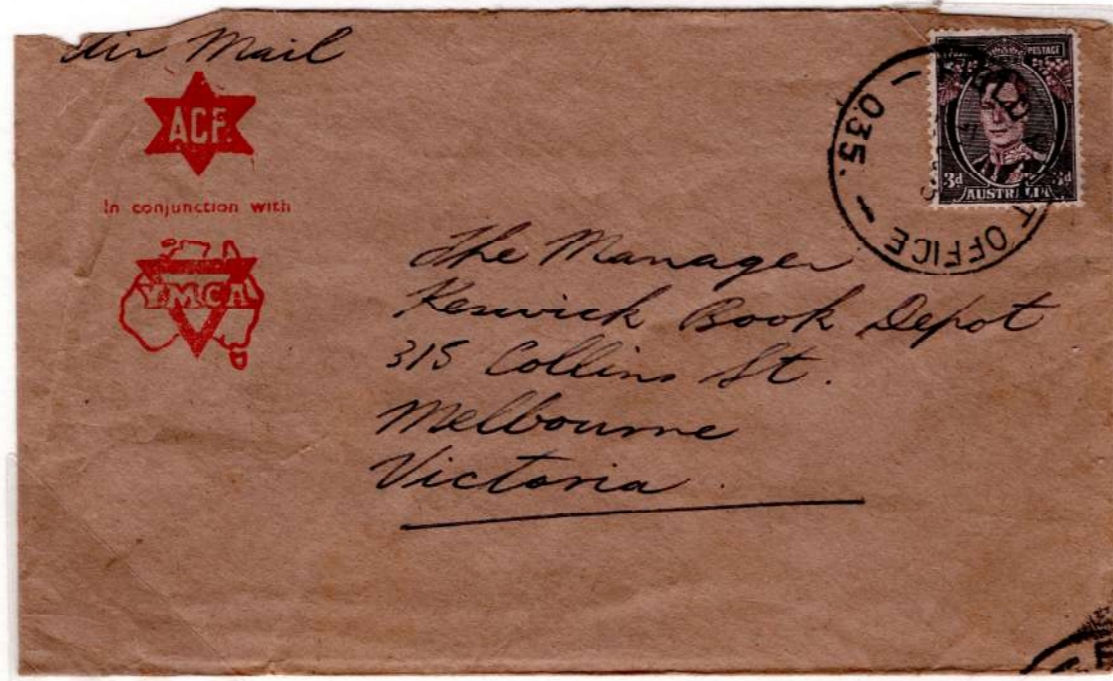 Air Mail
ACF.
In conjunction with
YMCA
POSTAGE
3d 3d
AUSTRALIA
035.
OFFICE
The Manager
Keswick Book Depot
315 Collins St.
Melbourne
Victoria.